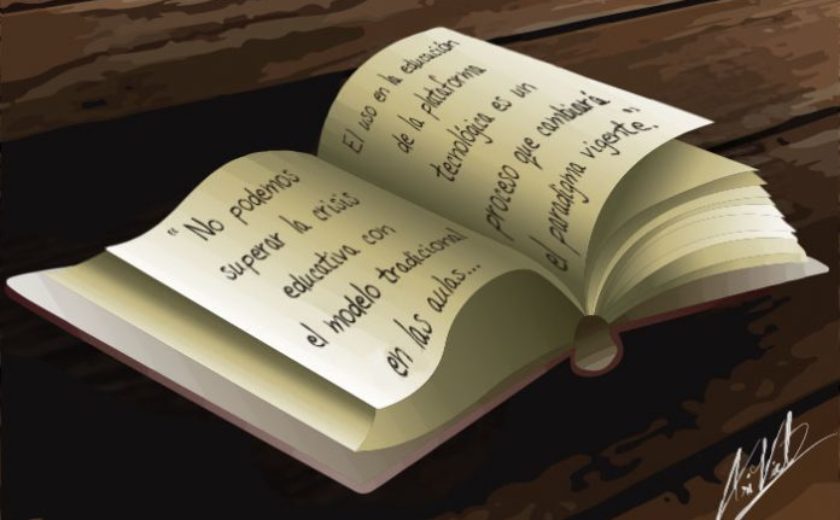 “ No podemos
superar la crisis
educativa con
el modelo tradicional
en las aulas...
El uso en la educación
de la plataforma
tecnológica es un
proceso que cambiaría
el paradigma vigente.”